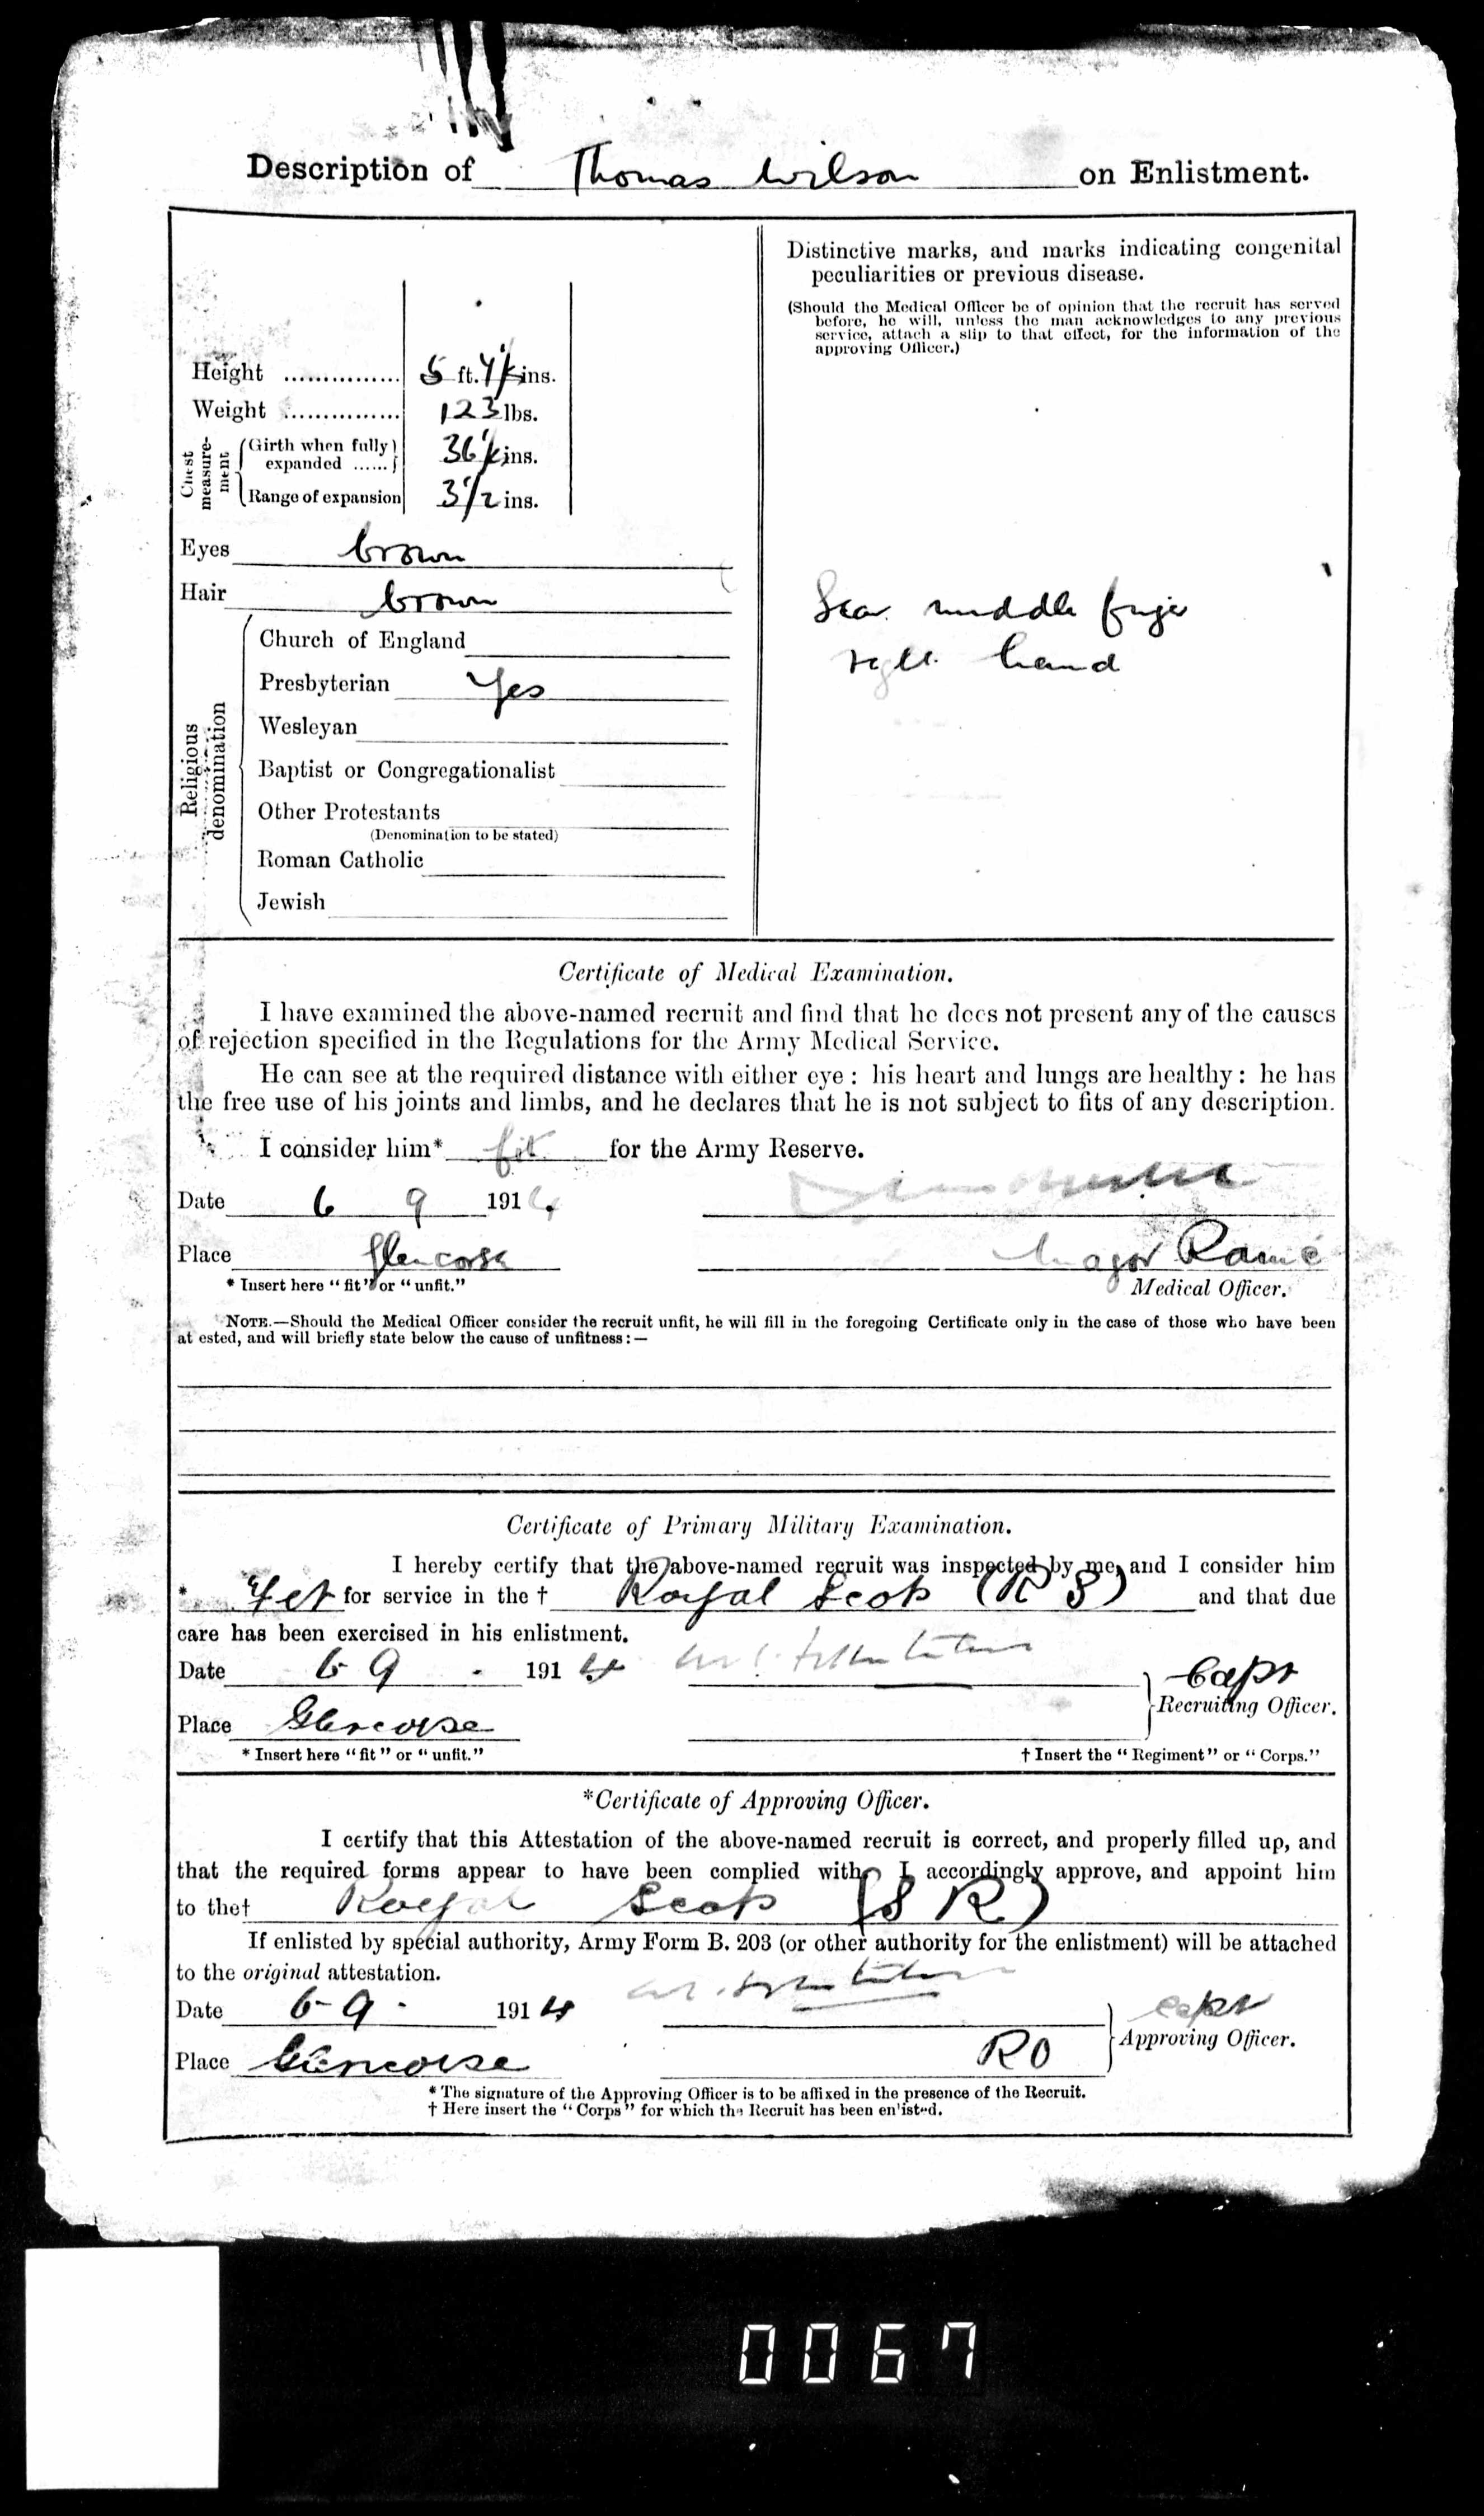 Description of Thomas Wilson on Enlistment.
Distinctive marks, and marks indicating congenital
peculiarities or previous disease.
(Should the Medical Officer be of opinion that the recruit has served
before, he will, unless the man acknowledges to any previous
service, attach a slip to that effect, for the information of the
approving Officer.)
Height ............... 5 ft. ins.
Weight ............... 123 lbs.
Chest measurement
Girth when fully expanded ...... 36 1/2 ins.
Range of expansion 3 1/2 ins.
Eyes brown
Hair brown
Scar middle finger
right hand
Religious denomination
Church of England
Presbyterian Yes
Wesleyan
Baptist or Congregationalist
Other Protestants
(Denomination to be stated)
Roman Catholic
Jewish
Certificate of Medical Examination.
I have examined the above-named recruit and find that he does not present any of the causes
of rejection specified in the Regulations for the Army Medical Service.
He can see at the required distance with either eye : his heart and lungs are healthy : he has
the free use of his joints and limbs, and he declares that he is not subject to fits of any description.
I consider him* fit for the Army Reserve.
Date 6 9 1914
Place Glencorse Major
* Insert here "fit" or "unfit."
Medical Officer.
NOTE.—Should the Medical Officer consider the recruit unfit, he will fill in the foregoing Certificate only in the case of those who have been
at ested, and will briefly state below the cause of unfitness :—
Certificate of Primary Military Examination.
I hereby certify that the above-named recruit was inspected by me, and I consider him
* Fit for service in the † Royal Scots (R S) and that due
care has been exercised in his enlistment.
Date 6-9 . 1914 Capt
Recruiting Officer.
Place Glencorse
* Insert here "fit" or "unfit." † Insert the "Regiment" or "Corps."
*Certificate of Approving Officer.
I certify that this Attestation of the above-named recruit is correct, and properly filled up, and
that the required forms appear to have been complied with. I accordingly approve, and appoint him
to the† Royal Scots (S R)
If enlisted by special authority, Army Form B. 203 (or other authority for the enlistment) will be attached
to the original attestation.
Date 6-9 . 1914 Capt
Approving Officer.
Place Glencorse RO
* The signature of the Approving Officer is to be affixed in the presence of the Recruit.
† Here insert the "Corps" for which the Recruit has been enlisted.
0067